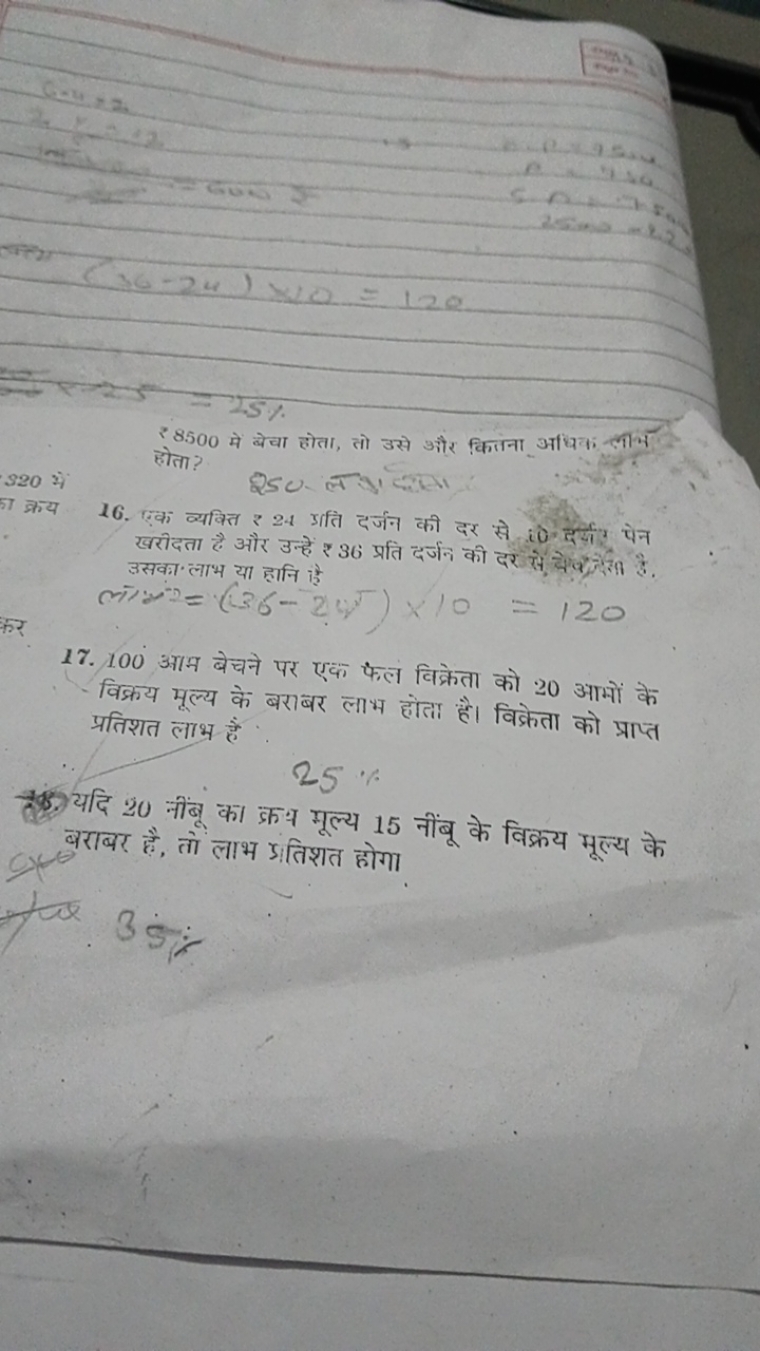 6-4=2
(36-24) × 10 = 120
× 25 = 25%
₹ 8500 मे बेचा होता, तो उसे और कितना अधिक लाभ
होता?
250
320 में
का क्रय
16. एक व्यक्ति ₹ 24 प्रति दर्जन की दर से 10 दर्जन पेन
खरीदता है और उन्हें ₹ 36 प्रति दर्जन की दर से बेच देता है,
उसका लाभ या हानि है
लाभ = (36-24) × 10 = 120
कर
17. 100 आम बेचने पर एक फल विक्रेता को 20 आमों के
विक्रय मूल्य के बराबर लाभ होता है। विक्रेता को प्राप्त
प्रतिशत लाभ है
25 %
18. यदि 20 नींबू का क्रय मूल्य 15 नींबू के विक्रय मूल्य के
बराबर है, तो लाभ प्रतिशत होगा
35%